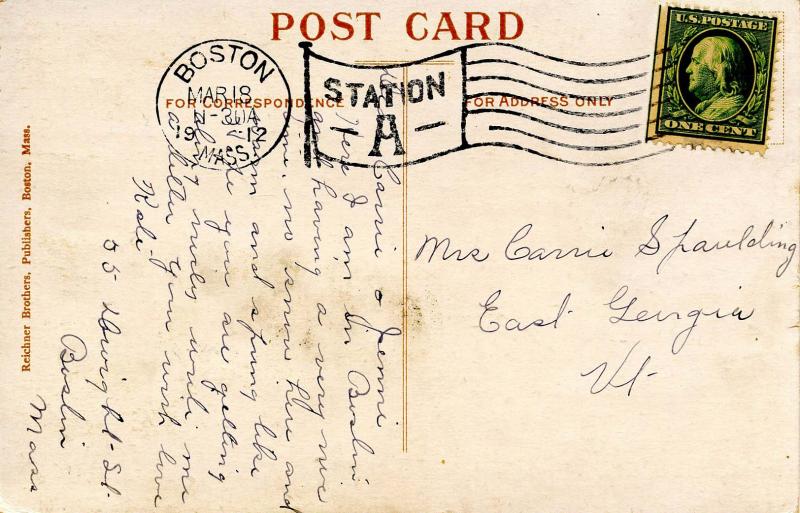 POST CARD
BOSTON
MAR 18
1912
MASS.
STATION
A
U.S. POSTAGE
ONE CENT
FOR CORRESPONDENCE
FOR ADDRESS ONLY
Reichner Brothers, Publishers, Boston, Mass.
Carrie & Jennie
Here I am in Boston
and having a very nice
time. no snow here and
warm and spring like
you are getting
write me
a letter you with love
Kate
55 Dwight St.
Boston
Mass
Mrs Carrie Spaulding
East Georgia
Vt.